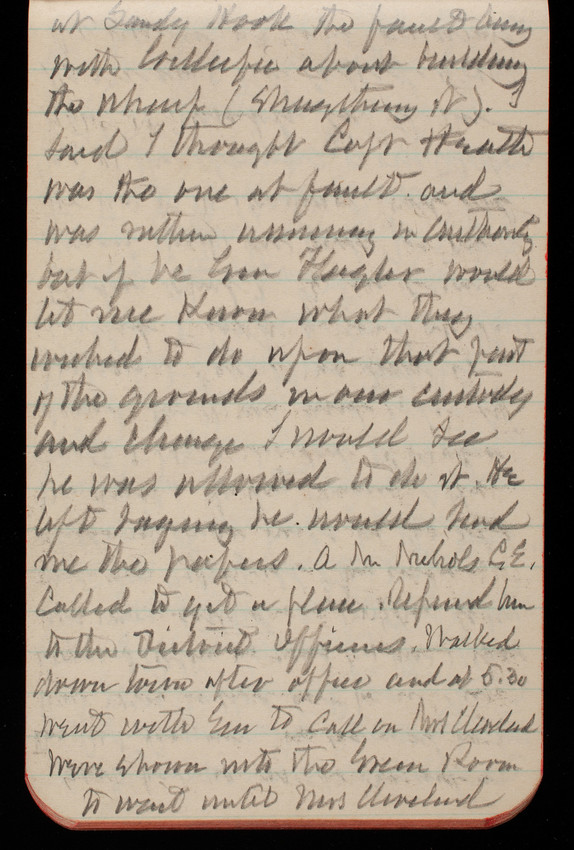 at Sandy Hook the fault being
with Gillespie about building
the wharf (strengthening it). I
said I thought Capt Heath
was the one at fault. and
was rather assuming in authority
but if he Gen Flagler would
let me Know what they
wished to do upon that part
of the grounds in our custody
and charge I would see
he was allowed to do it. He
left saying he would send
me the papers. A Mr Nichols C.E.
Called to get a place. Referred him
to the District officers. Walked
down town after office and at 5.30
went with Em to Call on Mrs Cleveland
Were shown into the Green Room
to wait until Mrs Cleveland